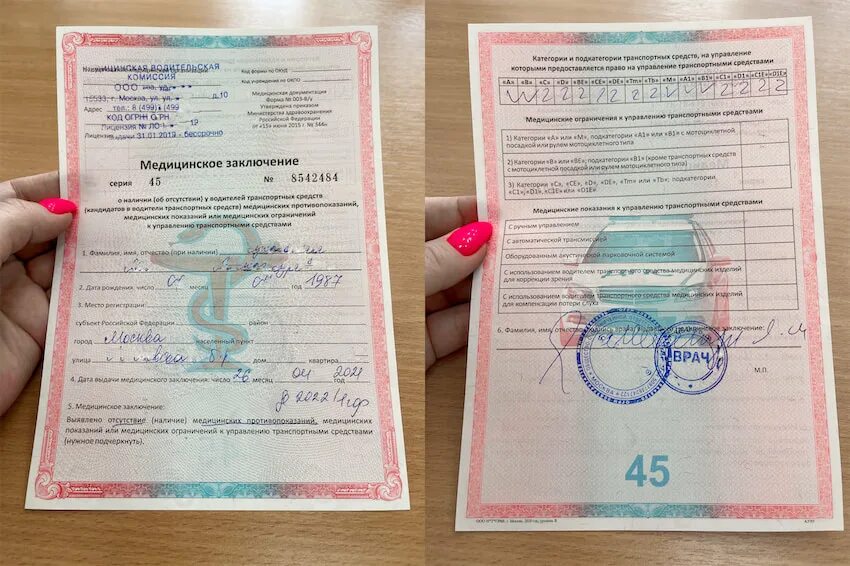 МЕДИЦИНСКАЯ ВОДИТЕЛЬСКАЯ
КОМИССИЯ
ООО
г. Москва, ул. д.10
Адрес тел.: 8 (499)
КОД ОГРН
Лицензия № ЛО 19
Лицензия Выдачи 31.01.2019 - Бессрочно
Код формы по ОКУД
Код учреждения по ОКПО
Медицинская документация
Форма № 003-В/у
Утверждена приказом
Министерства здравоохранения
Российской Федерации
от «15» июня 2015 г. № 344н
Медицинское заключение
серия 45 № 8542484
о наличии (об отсутствии) у водителей транспортных средств
(кандидатов в водители транспортных средств) медицинских противопоказаний,
медицинских показаний или медицинских ограничений
к управлению транспортными средствами
1. Фамилия, имя, отчество (при наличии)
2. Дата рождения: число 04 месяц 04 год 1987
3. Место регистрации:
субъект Российской Федерации район
город Москва населенный пункт
улица дом квартира
4. Дата выдачи медицинского заключения: число 26 месяц 04 2021
до 2022
5. Медицинское заключение:
Выявлено отсутствие (наличие) медицинских противопоказаний, медицинских
показаний или медицинских ограничений к управлению транспортными средствами
(нужное подчеркнуть).
Категории и подкатегории транспортных средств, на управление
которыми предоставляется право на управление транспортными средствами
«A» «B» «C» «D» «BE» «CE» «DE» «Tm» «Tb» «M» «A1» «B1» «C1» «D1» «C1E» «D1E»
Медицинские ограничения к управлению транспортными средствами
1) Категории «A» или «M», подкатегории «A1» или «B1» с мотоциклетной
посадкой или рулем мотоциклетного типа
2) Категории «B» или «BE», подкатегории «B1» (кроме транспортных средств
с мотоциклетной посадкой или рулем мотоциклетного типа)
3) Категории «C», «CE», «D», «DE», «Tm» или «Tb», подкатегории
«C1», «D1», «C1E» или «D1E»
Медицинские показания к управлению транспортными средствами
С ручным управлением
С автоматической трансмиссией
Оборудованным акустической парковочной системой
С использованием водителем транспортного средства медицинских изделий
для коррекции зрения
С использованием водителем транспортного средства медицинских изделий
для компенсации потери слуха
6. Фамилия, имя, отчество, подпись врача, выдавшего медицинское заключение:
ВРАЧ
МОСКВА
М.П.
45